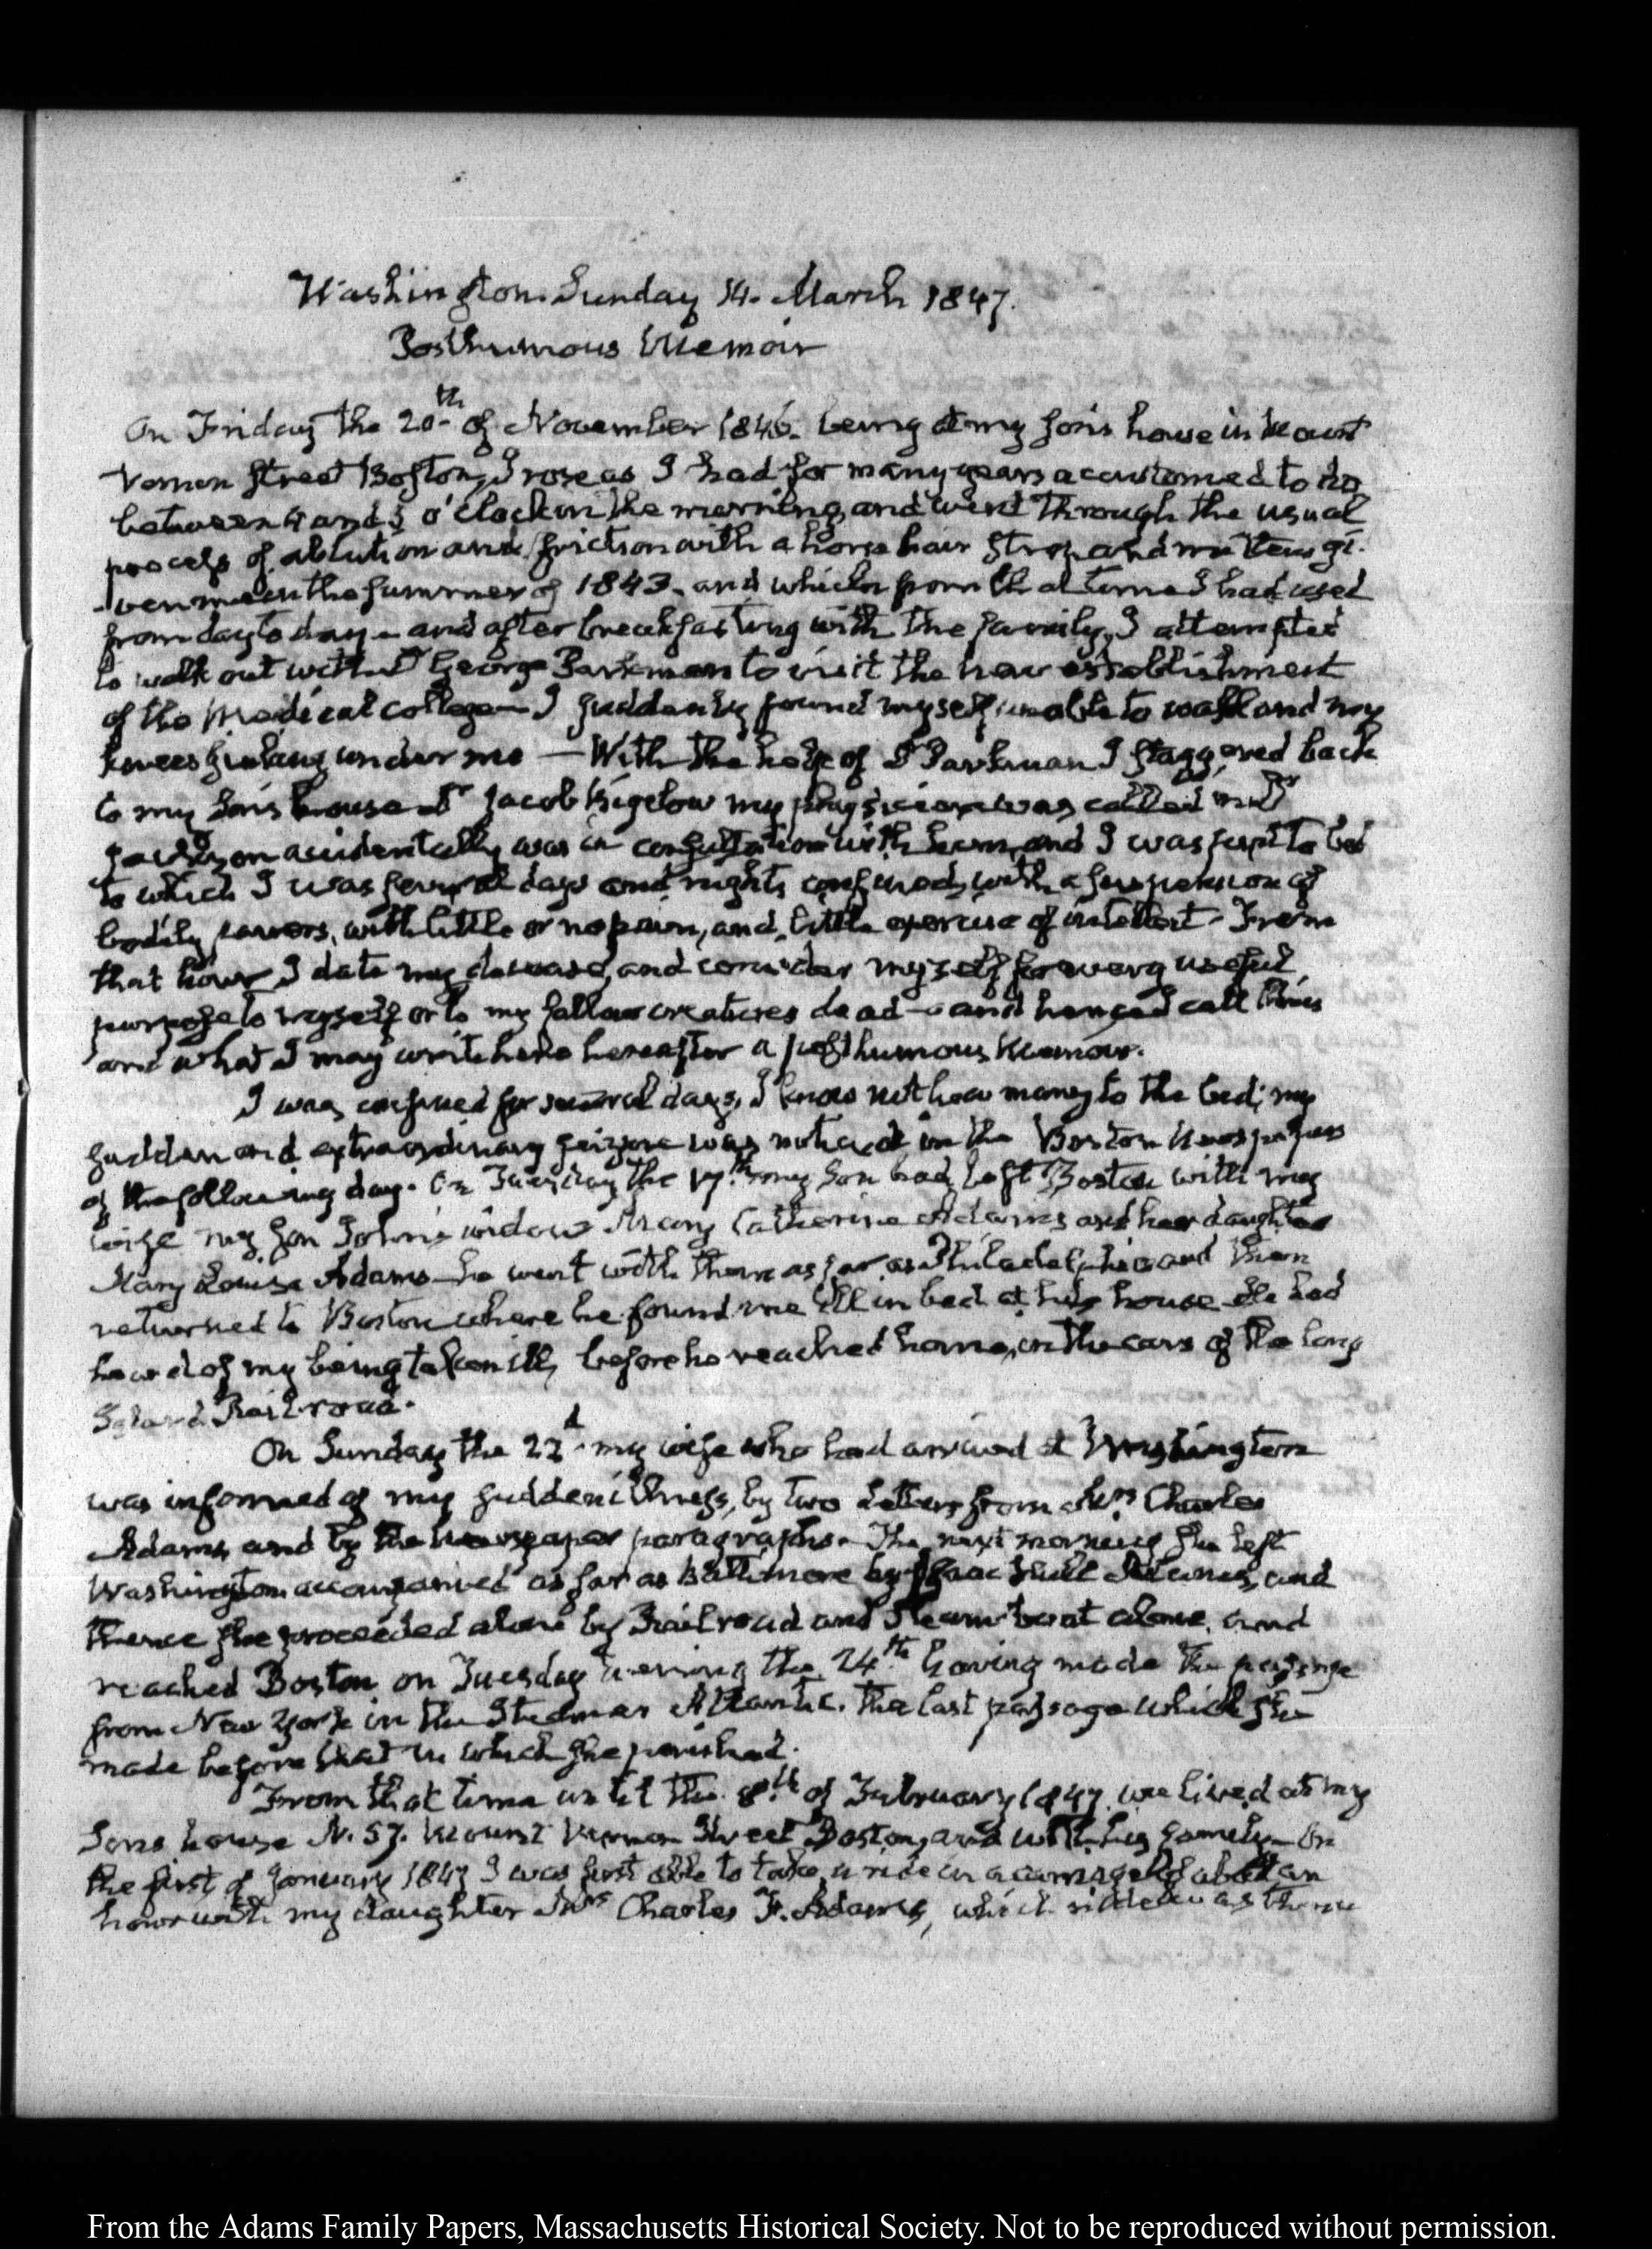 Washington. Sunday 14. March 1847.
Posthumous Memoir
On Friday the 20th of November 1846. being at my son's house in Mount
Vernon Street Boston, I rose as I had for many years accustomed to do
between 4 and 5 o'clock in the morning, and went through the usual
process of ablution and friction with a horse hair strap and mittens gi-
-ven me in the summer of 1843. and which from that time I had used
from day to day - and after breakfasting with the family, I attempted
to walk out with Dr George Parkman to visit the new establishment
of the Medical College - I suddenly found myself unable to walk and my
knees sinking under me — With the help of Dr Parkman I staggered back
to my son's house Dr Jacob Bigelow my physician was called in Dr
accidentally was in consultation with him, and I was put to bed
to which I was several days and nights confined, with a suspension of
bodily powers, with little or no pain, and little exercise of intellect - From
that hour I date my decease, and consider myself for every useful
purpose to myself or to my fellow creatures dead - and hence I call this
and what I may write here hereafter a posthumous Memoir.
I was confined for several days, I know not how many to the bed; my
sudden and extraordinary seizure was noticed in the Boston Newspapers
of the following day. On Tuesday the 17th my Son had left Boston with my
wife my son John's widow Mary Catherine Adams and her daughter
Mary Louisa Adams - he went with them as far as Philadelphia and then
returned to Boston where he found me ill in bed at his house - He had
heard of my being taken ill, before he reached home, in the cars of the Long
Island Railroad.
On Sunday the 22d my wife who had arrived at Washington
was informed of my sudden illness, by two letters from Mrs Charles
Adams and by the newspaper paragraphs. The next morning she left
Washington accompanied as far as Baltimore by Isaac Hull Adams, and
thence she proceeded alone by Railroad and Steam boat alone, and
reached Boston on Tuesday evening the 24th having made the passage
from New York in the Steamer Atlantic. The last passage which she
made before that in which she perished.
From that time until the 8th of February 1847 we lived at my
Sons house N. 57. Mount Vernon Street Boston, and with his family - On
the first of January 1847 I was first able to take a ride in a carriage of about an
hour with my daughter Mrs Charles F. Adams, which
From the Adams Family Papers, Massachusetts Historical Society. Not to be reproduced without permission.